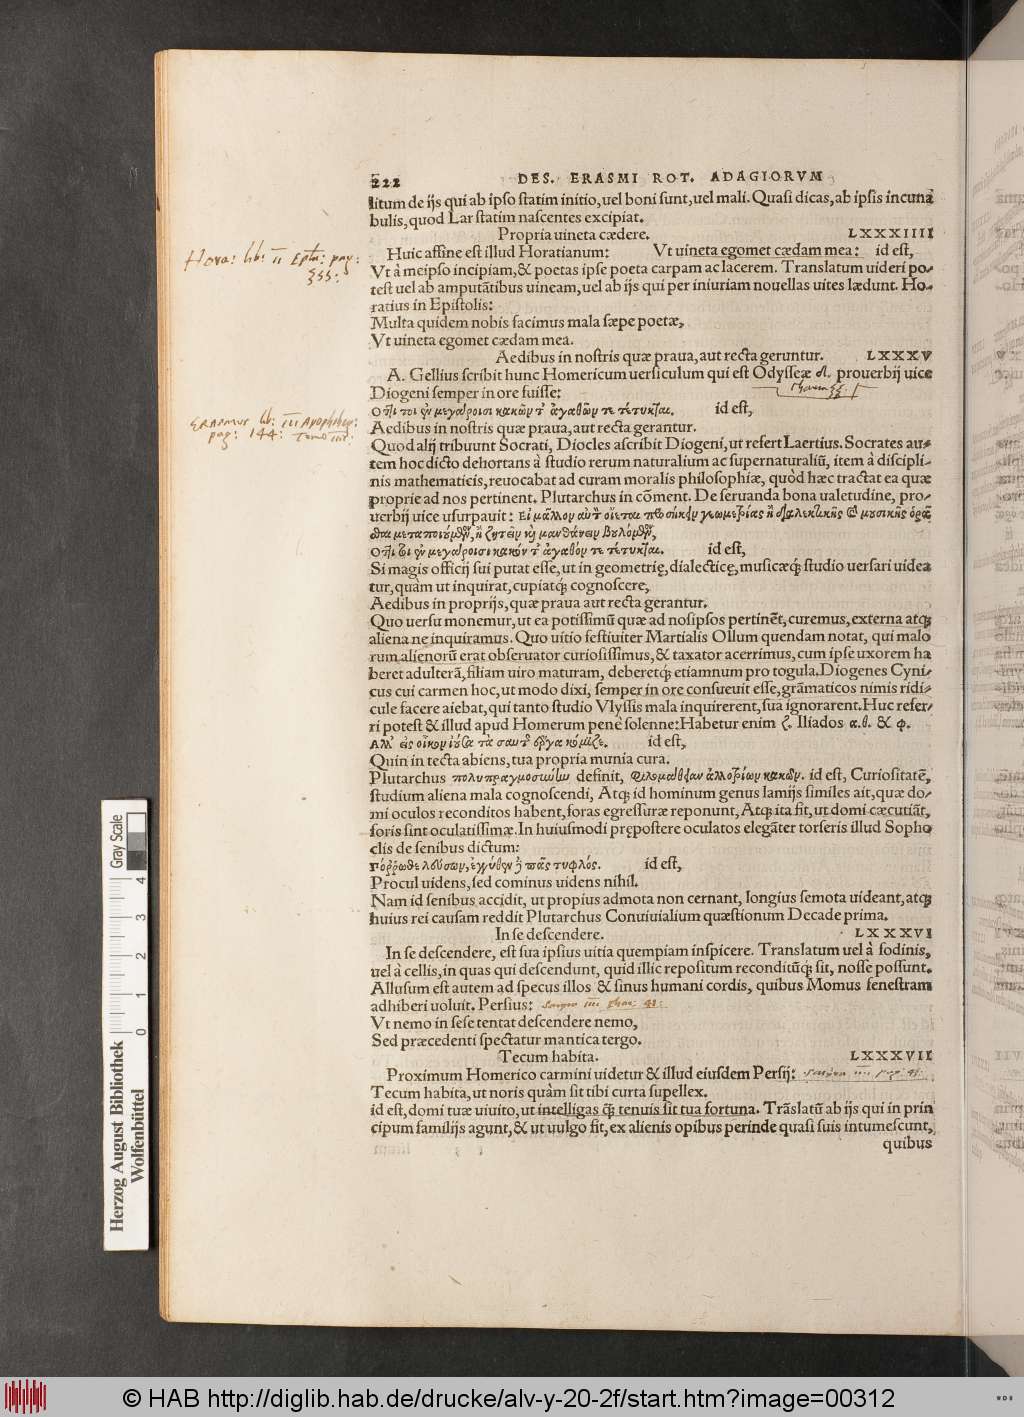 222 DES. ERASMI ROT. ADAGIORVM
litum de ijs qui ab ipso statim initio, uel boni sunt, uel mali. Quasi dicas, ab ipsis incunā
bulis, quod Lar statim nascentes excipiat.
Propria uineta cædere. LXXXIIII
Huic affine est illud Horatianum: Vt uineta egomet cædam mea: id est,
Hora: lib: II Epla: pag:
Vt à meipso incipiam, & poetas ipse poeta carpam ac lacerem. Translatum uideri po-
test uel ab amputātibus uineam, uel ab ijs qui per iniuriam nouellas uites lædunt. Ho-
ratius in Epistolis:
Multa quidem nobis facimus mala sæpe poetæ,
Vt uineta egomet cædam mea.
Aedibus in nostris quæ praua, aut recta geruntur. LXXXV
A. Gellius scribit hunc Homericum uersiculum qui est Odysseæ δ. prouerbij uice
Diogeni semper in ore fuisse:
Ὅτ̃τι τοι ἐν μεγάροισι κακῶν τ' ἀγαθῶν τε τέτυκται. id est,
Erasmus lib: III Apophtheg:
pag: 144: Tomo IIII:
Aedibus in nostris quæ praua, aut recta gerantur.
Quod alij tribuunt Socrati, Diocles ascribit Diogeni, ut refert Laertius. Socrates au-
tem hoc dicto dehortans à studio rerum naturalium ac supernaturaliū, item à discipli-
nis mathematicis, reuocabat ad curam moralis philosophiæ, quòd hæc tractat ea quæ
proprie ad nos pertinent. Plutarchus in cōment. De seruanda bona ualetudine, pro-
uerbij uice usurpauit:
Ὅτ̃τι τοι ἐν μεγάροισι κακόν τ' ἀγαθόν τε τέτυκται. id est,
Si magis officij sui putat esse, ut in geometrię, dialecticę, musicæq; studio uersari uidea
tur, quàm ut inquirat, cupiatq; cognoscere,
Aedibus in proprijs, quæ praua aut recta gerantur.
Quo uersu monemur, ut ea potissimū quæ ad nosipsos pertinēt, curemus, externa atq;
aliena ne inquiramus. Quo uitio festiuiter Martialis Ollum quendam notat, qui malo
rum alienorū erat obseruator curiosissimus, & taxator acerrimus, cum ipse uxorem ha
beret adulterā, filiam uiro maturam, deberetq; etiamnum pro togula. Diogenes Cyni-
cus cui carmen hoc, ut modo dixi, semper in ore consueuit esse, grāmaticos nimis ridi-
cule facere aiebat, qui tanto studio Vlyssis mala inquirerent, sua ignorarent. Huc refer-
ri potest & illud apud Homerum penè solenne: Habetur enim ζ. Iliados α. θ. & φ.
Ἀλλ' εἰς οἶκον ἰοῦσα τὰ σαυτῆς ἔργα κόμιζε. id est,
Quin in tecta abiens, tua propria munia cura.
Plutarchus πολυπραγμοσύνην definit, φιλομάθειαν ἀλλοτρίων κακῶν. id est, Curiositatē,
studium aliena mala cognoscendi, Atq; id hominum genus lamijs similes ait, quæ do-
mi oculos reconditos habent, foras egressuræ reponunt, Atq; ita fit, ut domi cæcutiāt,
foris sint oculatissimæ. In huiusmodi prępostere oculatos elegāter torseris illud Sopho
clis de senibus dictum:
Πόρρωθε λεύσσων, ἐγγύθεν δὲ πᾶς τυφλός. id est,
Procul uidens, sed cominus uidens nihil.
Nam id senibus accidit, ut propius admota non cernant, longius semota uideant, atq;
huius rei causam reddit Plutarchus Conuiuialium quæstionum Decade prima.
In se descendere. LXXXVI
In se descendere, est sua ipsius uitia quempiam inspicere. Translatum uel à fodinis,
uel à cellis, in quas qui descendunt, quid illic repositum reconditūq; sit, nosse possunt.
Allusum est autem ad specus illos & sinus humani cordis, quibus Momus fenestram
adhiberi uoluit. Persius:
Vt nemo in sese tentat descendere nemo,
Sed præcedenti spectatur mantica tergo.
Tecum habita. LXXXVII
Proximum Homerico carmini uidetur & illud eiusdem Persij:
Tecum habita, ut noris quàm sit tibi curta supellex.
id est, domi tuæ uiuito, ut intelligas q̄; tenuis sit tua fortuna. Trāslatū ab ijs qui in prin
cipum familijs agunt, & ut uulgo fit, ex alienis opibus perinde quasi suis intumescunt,
quibus
Gray Scale
0 1 2 3 4
Herzog August Bibliothek
Wolfenbüttel
© HAB http://diglib.hab.de/drucke/alv-y-20-2f/start.htm?image=00312